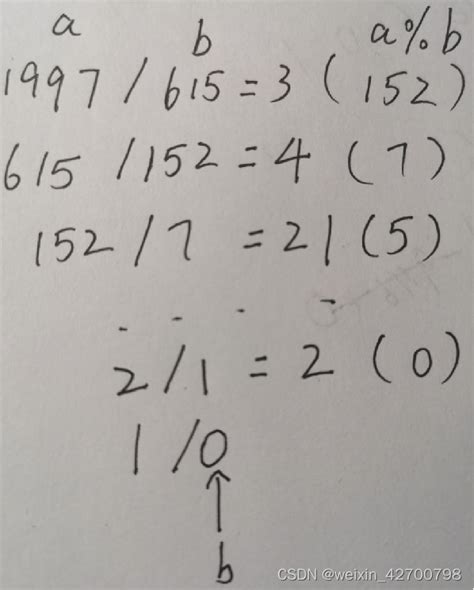 a b a%b
1997 / 615 = 3 (152)
615 / 152 = 4 (7)
152 / 7 = 21 (5)
2 / 1 = 2 (0)
1 / 0
b
CSDN @weixin_42700798